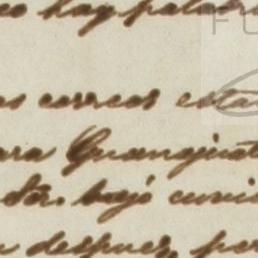 co hay palab
os correos están
ara Guanajuat
Sr. bajó curio
despues, por